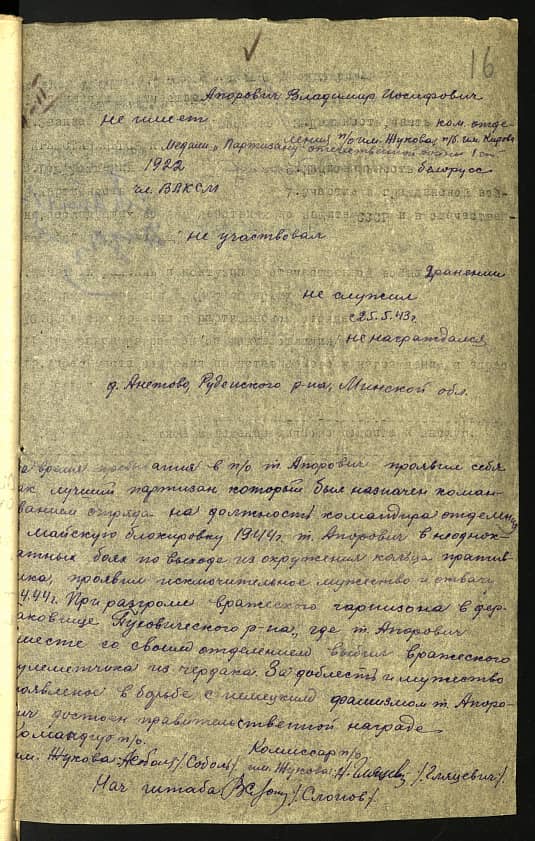 16
Апорович Владимир Иосифович
не имеет ком. отде-
ления п/о им. Жукова, п/б им. Кирова
Медали „Партизану отечественной войны I ст.
1922 белорус
чл. ВЛКСМ
не участвовал
не служил
с 25.5.43 г.
не награждался
д. Анетово, Руденского р-на, Минской обл.
время пребывания в п/о т. Апорович проявил себя
ак лучший партизан который был назначен коман-
ванием отряда на должность командира отделения
майскую блокировку 1944 г. т. Апорович в неоднок-
атных боях по выходе из окружения кольца против-
ика, проявил исключительное мужество и отвагу
4.44 г. При разгроме вражеского гарнизона в дер.
Пуховического р-на, где т. Апорович
месте со своим отделением выбил вражеского
улеметчика из чердака. За доблесть и мужество
оявленое в борьбе с немецким фашизмом т. Апоро-
ич достоен правительственной награде
Командир п/о. Комиссар п/о,
им. Жукова /Соболь/ им. Жукова: /Гляцевич/.
Нач штаба /Слонов/.